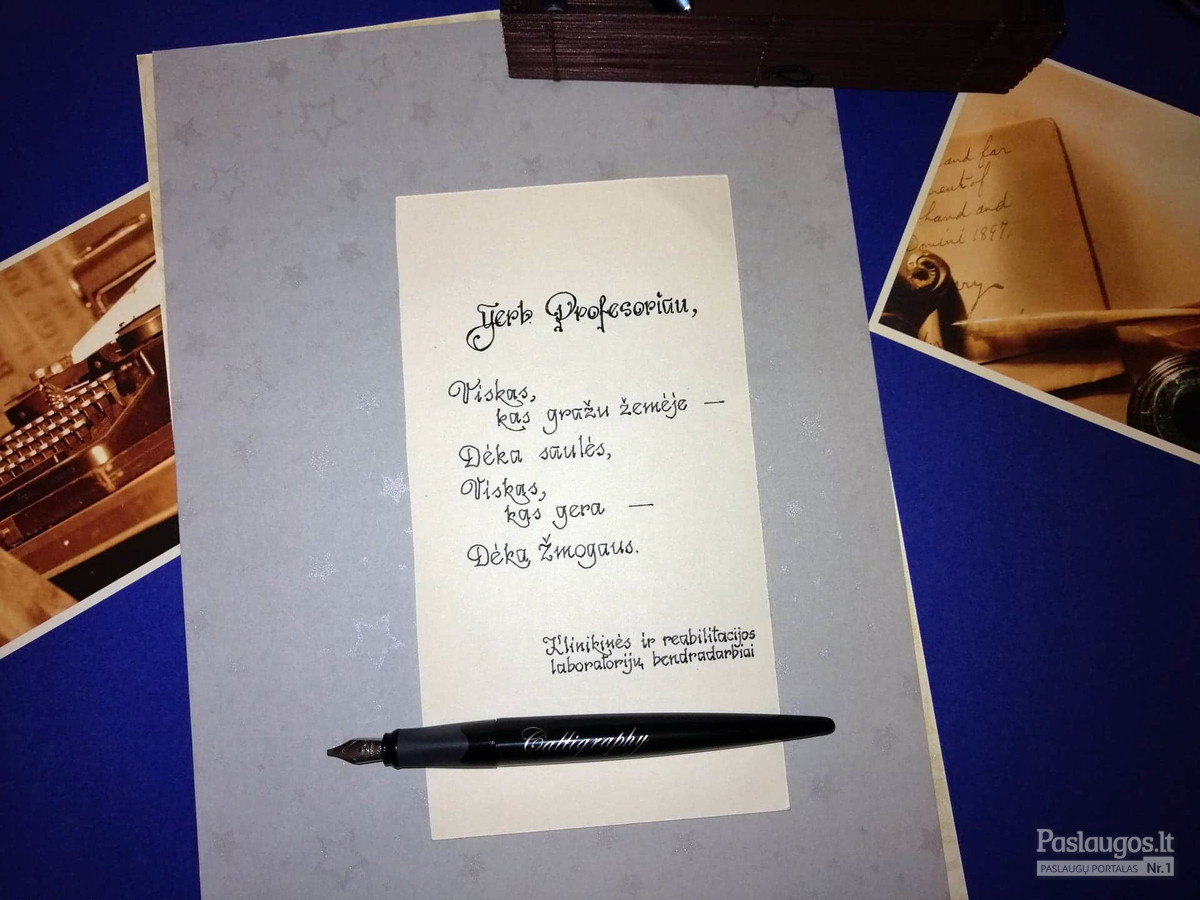 Gerb. Profesoriau,
Viskas,
kas gražu žemėje —
Dėka saulės,
Viskas,
kas gera —
Dėka Žmogaus.
Klinikinės ir reabilitacijos
laboratorijų bendradarbiai
Calligraphy
and far
ment of
hand and
Domini 1897.
Paslaugos.lt
PASLAUGŲ PORTALAS Nr.1